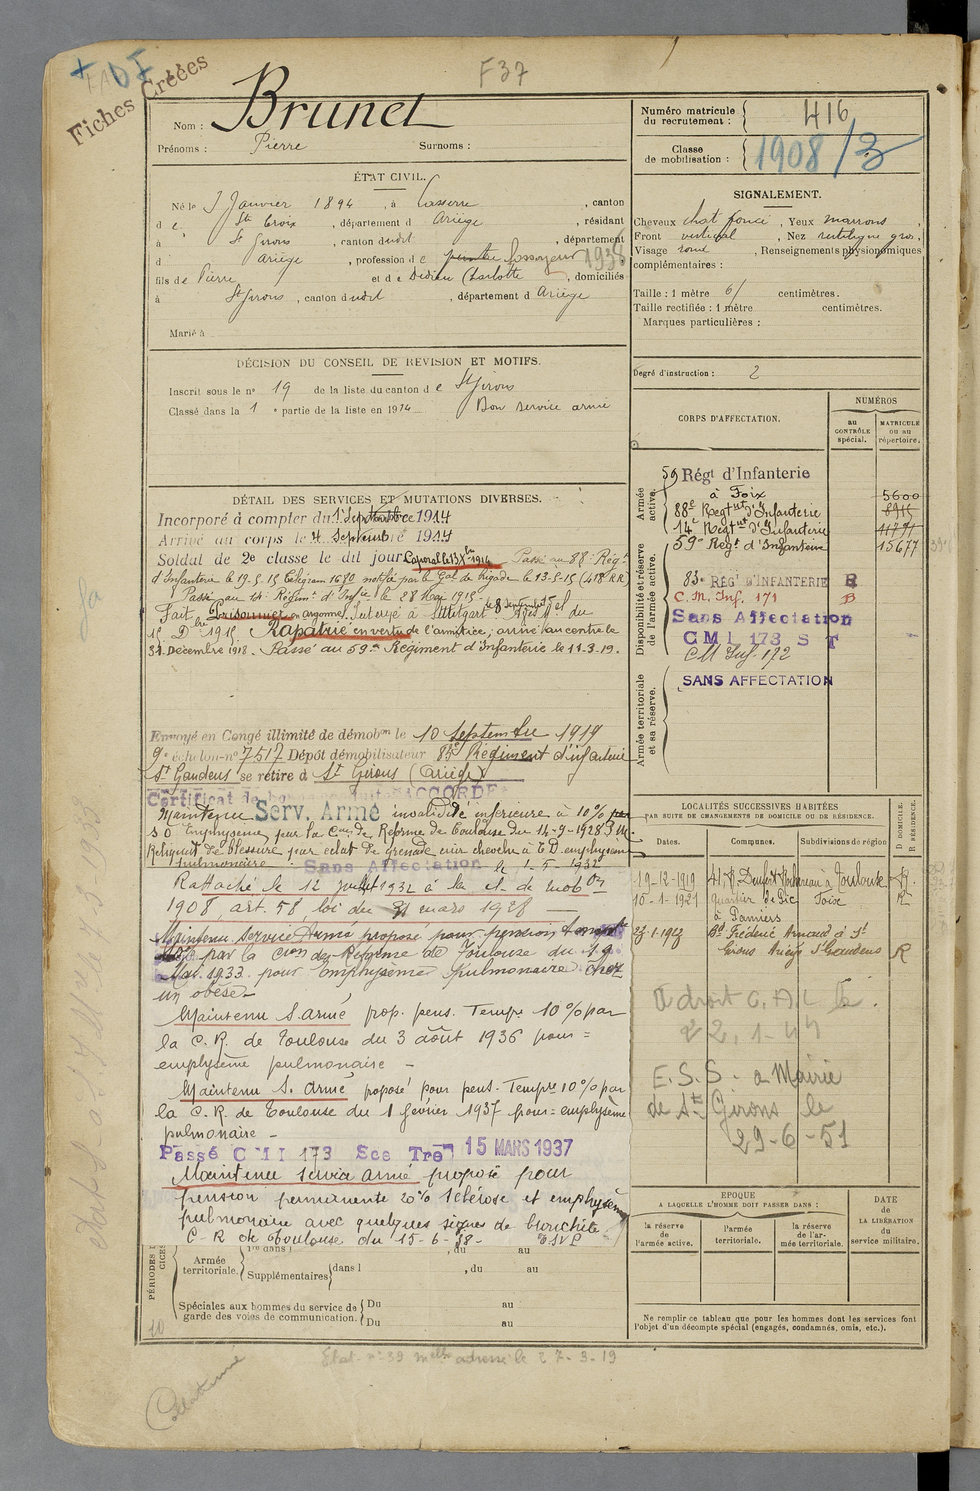 F37
Fiches Créées
Nom : Brunet
Prénoms : Pierre Surnoms :
ÉTAT CIVIL.
Né le Janvier 1894, à Lasserre, canton
de Ste Croix, département d Ariège, résidant
à St Girons, canton dudit, département
d Ariège, profession de fossoyeur 1936
fils de Pierre et de Dedieu Charlotte, domiciliés
à St Girons, canton dudit, département d Ariège
Marié à
DÉCISION DU CONSEIL DE REVISION ET MOTIFS.
Inscrit sous le n° 19 de la liste du canton de St Girons
Classé dans la 1e partie de la liste en 1914 Bon service armé
DÉTAIL DES SERVICES ET MUTATIONS DIVERSES.
Incorporé à compter du 1 Septembre 1914
Arrivé au corps le 4 Septembre 1914
Soldat de 2e classe le dit jour Caporal le 1914 Passé au 88e Régt
d'Infanterie le 19.5.15 notifié par le Gal de brigade le 13.5.15
Passé au 14e Régimt d'Infie le 28 Mai 1915.
Fait Prisonnier en argonne. Interné à Stuttgart.
1915 Rapatrié en vertu de l'armistice, arrivé au centre le
31 Décembre 1918. Passé au 59e Régiment d'Infanterie le 11-3-19.
Envoyé en Congé illimité de démobon le 10 septembre 1919
9e échelon n° 7517 Dépôt démobilisateur 83e Régiment d'infanterie
St Gaudens se retire à St Girons (Ariège)
Certificat de bonne conduite ACCORDÉ
Maintenu Serv. Armé invalidité inférieure à 10%
Emphysème par la Con de Réforme de Toulouse du 14-9-1928
Reliquat de blessure par éclat de grenade cuir chevelu emphysème
pulmonaire Sans Affectation le 1-5-1932
Rattaché le 12 juillet 1932 à la cl. de mobon
1908, art. 58, loi du 31 mars 1928
Maintenu Service Armé proposé pour pension
par la Cion de Réforme de Toulouse du 19
Mai 1933 pour Emphysème pulmonaire chez
un obèse
Maintenu S. armé prop. pens. Tempre 10% par
la C. R. de Toulouse du 3 août 1936 pour =
emphysème pulmonaire -
Maintenu S. armé proposé pour pens. Tempre 10% par
la C. R. de Toulouse du 1 février 1937 pour = emphysème
pulmonaire -
Passé CMI 173 15 MARS 1937
Maintenu service armé proposé pour
pension permanente 20% Sclérose et emphysème
pulmonaire avec quelques signes de bronchite
C. R de Toulouse du 15-6-38 - TSVP
Armée territoriale. dans l , du au
Supplémentaires dans l , du au
Spéciales aux hommes du service de garde des voies de communication. Du au
Du au
10
Etat n° 39 adressé le 27-3-19
Numéro matricule du recrutement : 416
Classe de mobilisation : 1908/3
SIGNALEMENT.
Cheveux chat. foncé, Yeux marrons,
Front vertical, Nez rectiligne gros,
Visage rond, Renseignements physionomiques
complémentaires :
Taille : 1 mètre 61 centimètres.
Taille rectifiée : 1 mètre centimètres.
Marques particulières :
Degré d'instruction : 2
CORPS D'AFFECTATION.
NUMÉROS
au CONTRÔLE spécial.
MATRICULE ou au répertoire.
Armée active.
59 Régt d'Infanterie
à Foix 5600
88e Régt d'Infanterie
14e Régt d'Infanterie
59e Régt d'Infanterie 15677
Disponibilité et réserve de l'armée active.
83e RÉGt D'INFANTERIE R
C. M. Inf. 171
Sans Affectation
CMI 173 S T
CM Inf. 172
Armée territoriale et sa réserve.
SANS AFFECTATION
LOCALITÉS SUCCESSIVES HABITÉES
PAR SUITE DE CHANGEMENTS DE DOMICILE OU DE RÉSIDENCE.
D DOMICILE. R RÉSIDENCE.
Dates. Communes. Subdivisions de région
19-12-1919 Toulouse
10-1-1921 quartier de Foix R
à Pamiers
Bd Frédéric Arnaud à St
Girons Ariège St Gaudens R
a droit C. A. L le
22.1-47
E. S. S. - a Mairie
de St Girons le
29-6-51
EPOQUE
A LAQUELLE L'HOMME DOIT PASSER DANS :
la réserve de l'armée active.
l'armée territoriale.
la réserve de l'armée territoriale.
DATE de LA LIBÉRATION du service militaire.
Ne remplir ce tableau que pour les hommes dont les services font
l'objet d'un décompte spécial (engagés, condamnés, omis, etc.).